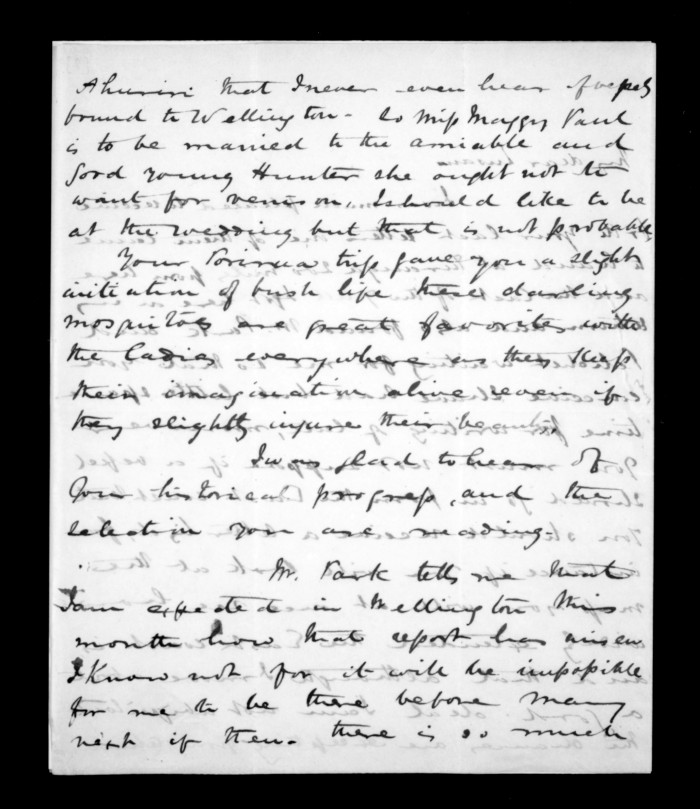 Ahuriri that I never even hear of vessels
bound to Wellington - So Miss Maggy Paul
is to be married to the amiable and
good young Hunter she ought not to
want for venison, I should like to be
at the wedding but that is not probable
Your Porirua trip gave you a slight
initiation of bush life these darling
mosquitos are great favorites with
the ladies everywhere as they keep
their imagination alive even if
they slightly injure their beauty
I was glad to hear of
your historical progress, and the
selection you are making.
Mr. Park tells me that
I am expected in Wellington this
month how that report has arisen
I know not for it will be impossible
for me to be there before many
next if then. there is so much